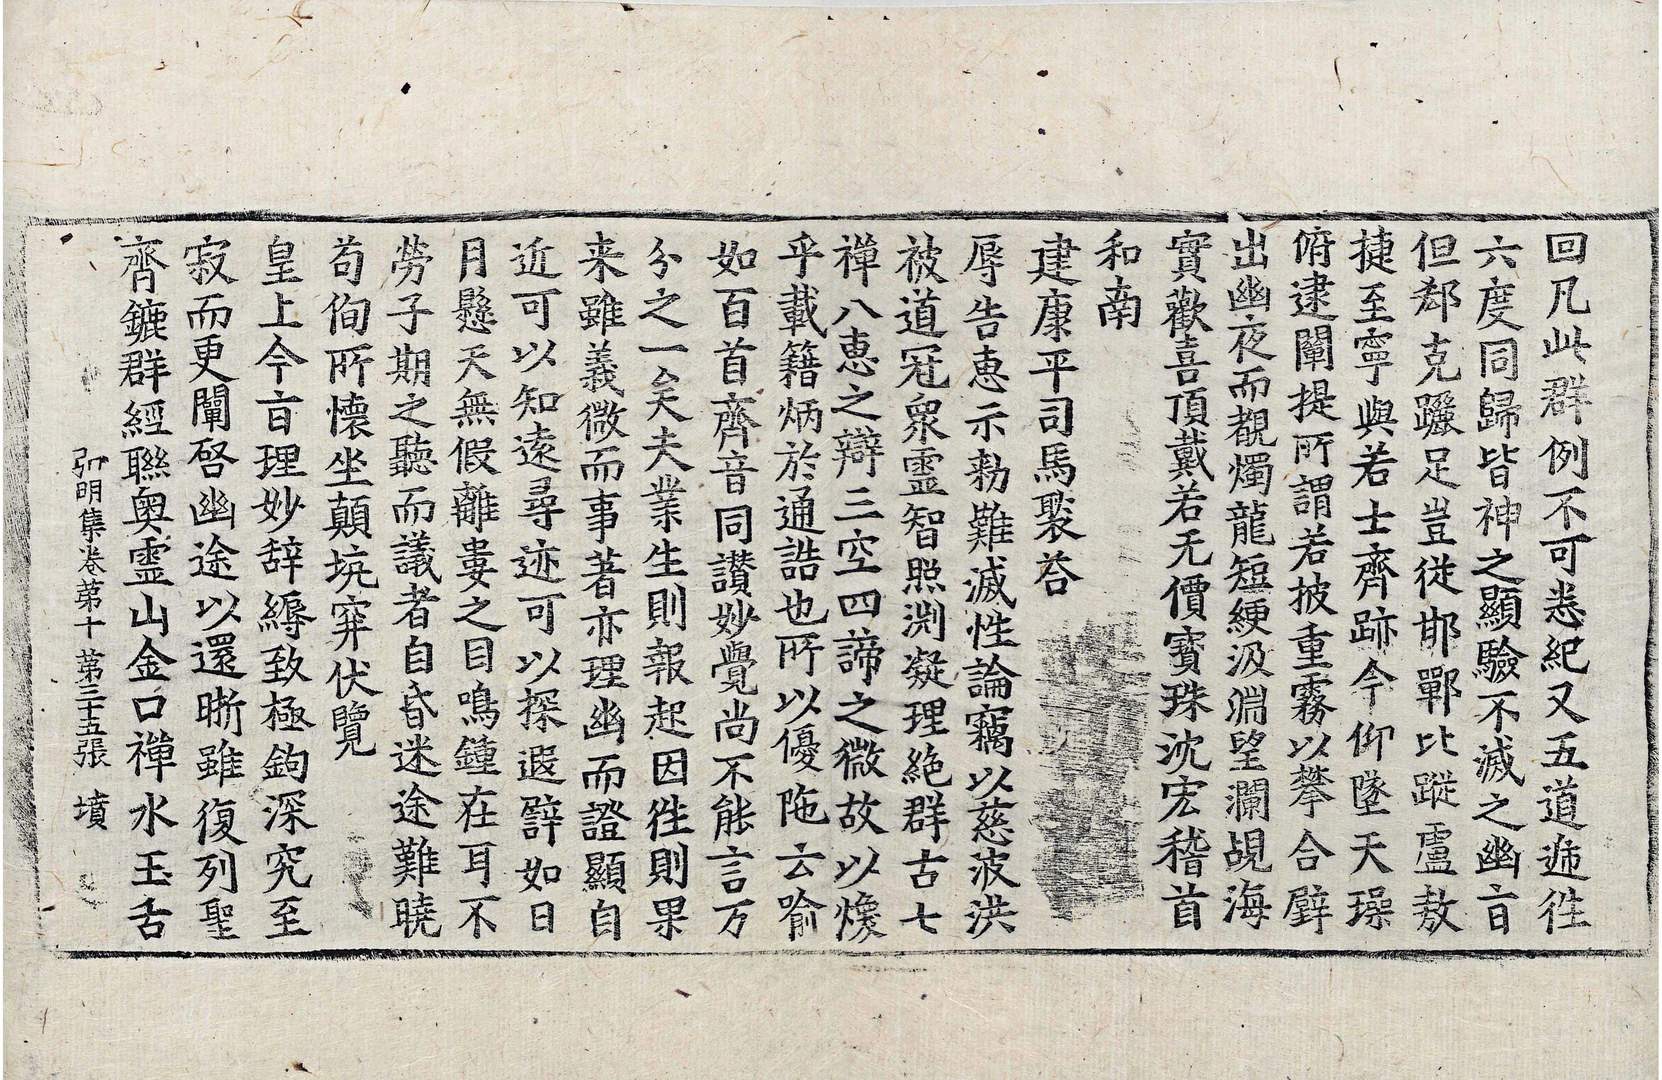 回凡此群例不可悉紀又五道遞徃
六度同歸皆神之顯驗不滅之幽㫖
但郄克躧足豈從邯鄲比蹤盧敖
捷至寧與若士齊跡今仰墜天璪
俯逮闡提所謂若披重霧以攀合璧
出幽夜而覩燭龍短綆汲淵望瀾覘海
實歡喜頂戴若无價寶珠沈宏稽首
和南
建康平司馬褧荅
辱告惠示勑難滅性論竊以慈波洪
被道冠衆靈智照渕凝理絶群古七
禪八惠之辯三空四諦之微故以煥
乎載籍炳於通誥也所以優陁云喻
如百首齊音同讃妙覺尚不能言万
分之一矣夫業生則報起因徃則果
来雖義微而事著亦理幽而證顯自
近可以知逺尋迹可以探遐譬如日
月懸天無假離婁之目鳴鍾在耳不
勞子期之聽而議者自昏迷途難曉
苟佝所懷坐顛坑穽伏覽
皇上令㫖理妙辞縟致極鉤深究至
寂而更闡啓幽途以還晣雖復列聖
齊鑣群經聯奥靈山金口禪水玉舌
弘明集卷第十 第三十五張 墳